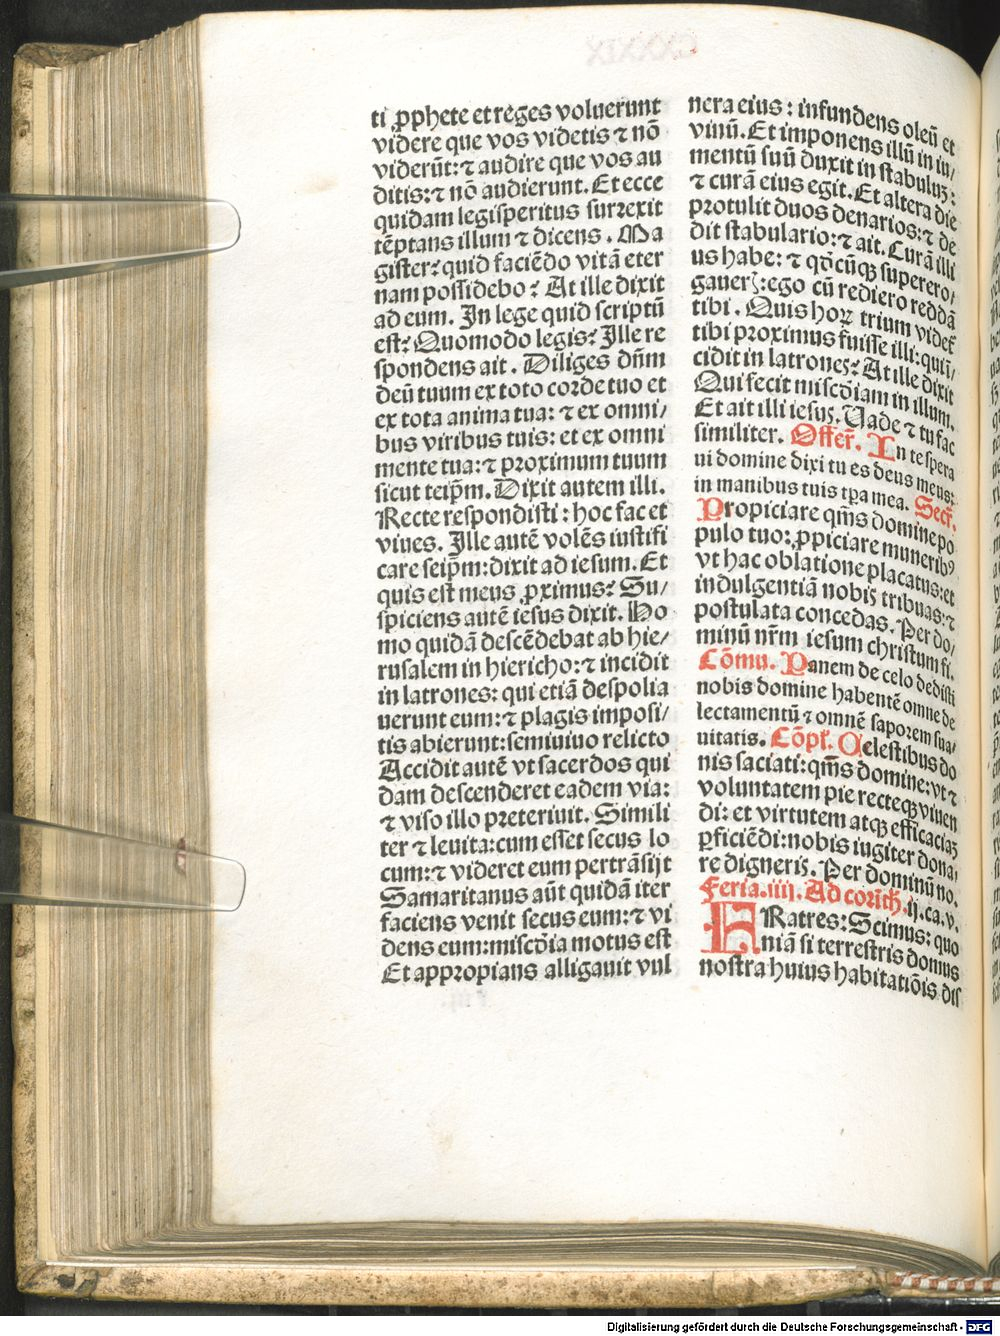 ti ꝓphete et reges voluerunt
videre que vos videtis ⁊ nō
viderūt:⁊ audire que vos au
ditis:⁊ nō audierunt. Et ecce
quidam legisperitus surrexit
tēptans illum ⁊ dicens. Ma
gister: quid faciēdo vitā eter
nam possidebo? At ille dixit
ad eum. In lege quid scriptū
est? Quomodo legis? Ille re
spondens ait. Diliges dn̄m
deū tuum ex toto corde tuo et
ex tota anima tua: ⁊ ex omni/
bus viribus tuis: et ex omni
mente tua:⁊ proximum tuum
sicut teip̄m. Dixit autem illi.
Recte respondisti: hoc fac et
viues. Ille autē volēs iustifi
care seip̄m: dixit ad iesum. Et
quis est meus ꝓximus? Su/
spiciens autē iesus dixit. Ho
mo quidā descēdebat ab hie/
rusalem in hiericho:⁊ incidit
in latrones: qui etiā despolia
uerunt eum:⁊ plagis imposi/
tis abierunt: semiuiuo relicto
Accidit autē vt sacerdos qui
dam descenderet eadem via:
⁊ viso illo preteriuit. Simili
ter ⁊ leuita: cum esset secus lo
cum:⁊ videret eum pertrāsijt
Samaritanus aūt quidā iter
faciens venit secus eum:⁊ vi
dens eum: mīscōia motus est
Et appropians alligauit vul
nera eius: infundens oleū et
vinū. Et imponens illū in iu/
mentū suū duxit in stabuluꝫ:
⁊ curā eius egit. Et altera die
protulit duos denarios:⁊ de
dit stabulario:⁊ ait. Curā illi
us habe: ⁊ qd̄cūqꝫ superero/
gauer̄: ego cū rediero reddā
tibi. Quis hoꝝ trium videt̄
tibi proximus fuisse illi: qui ī/
cidit in latrones? At ille dixit
Qui fecit mīscōiam in illum.
Et ait illi iesus. Vade ⁊ tu fac
similiter. Offer̄. In te spera
ui domine dixi tu es deus meus:
in manibus tuis tp̄a mea. Secr̄.
Propiciare qm̄s domine po
pulo tuo: ꝓpiciare muneribꝰ
vt hac oblatione placatus: et
indulgentiā nobis tribuas:⁊
postulata concedas. Per do/
minū nr̄m iesum christum fi.
Cōmu. Panem de celo dedisti
nobis domine habentē omne de
lectamentū ⁊ omnē saporem sua/
uitatis. Cōpl̄. Celestibus do
nis saciati: qm̄s domine: vt ⁊
voluntatem pie recteqꝫ viuen
di: et virtutem atqꝫ efficaciaꝫ
ꝑficiēdi: nobis iugiter dona/
re digneris. Per dominū no.
Feria.iiij. Ad corīth.ij.ca.v.
FRatres: Scimus: quo
niā si terrestris domus
nostra huius habitatiōis dis
Digitalisierung gefördert durch die Deutsche Forschungsgemeinschaft - DFG